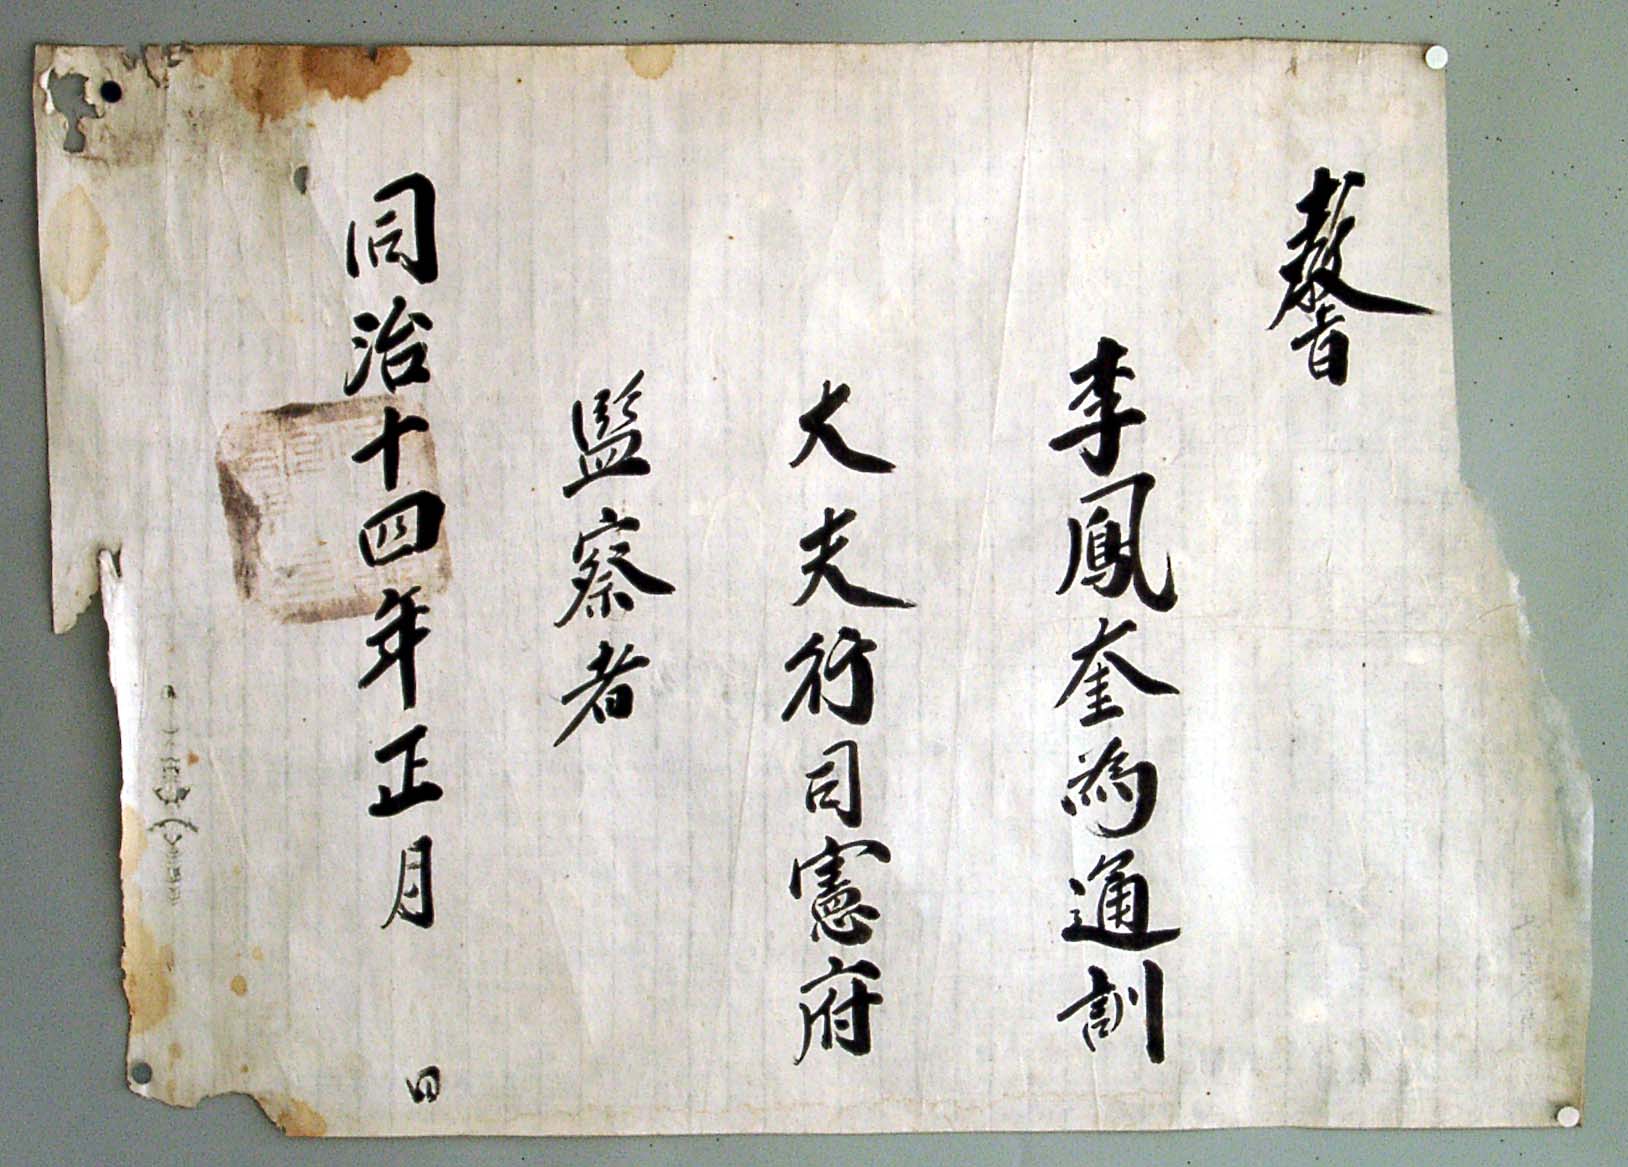 敎旨
李鳳奎爲通訓
大夫行司憲府
監察者
同治十四年正月 日